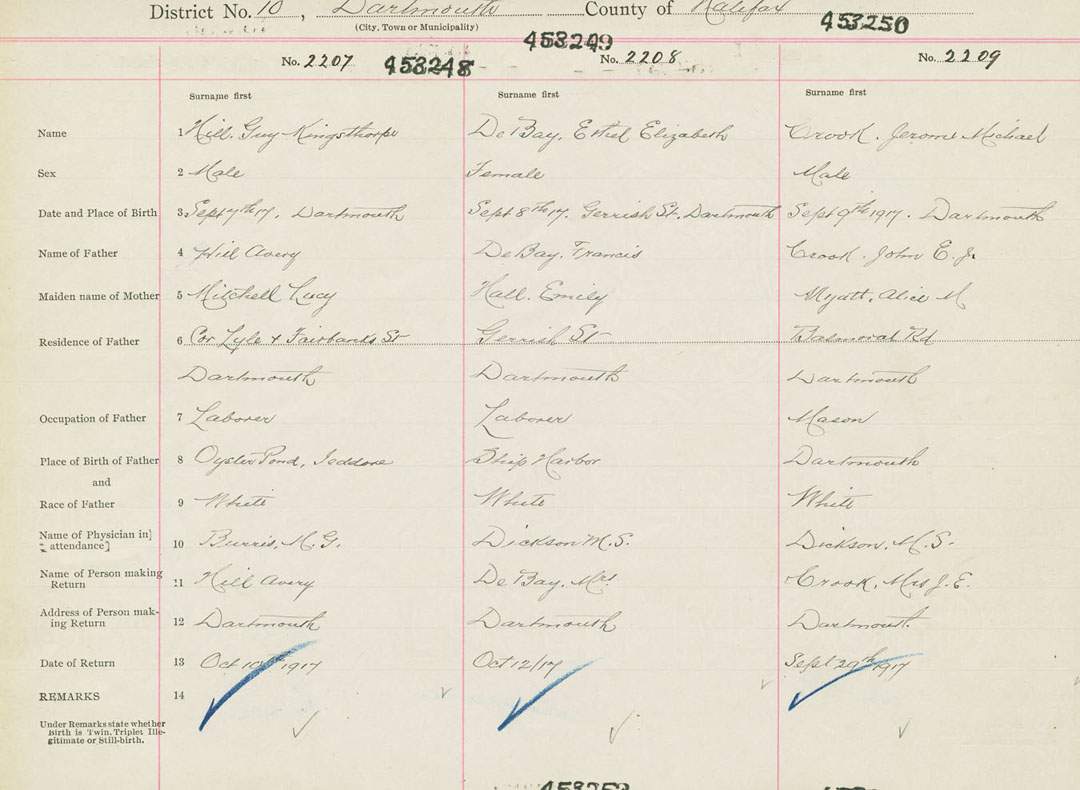 District No. 10, Dartmouth County of Halifax
(City, Town or Municipality)
453249 453250
No. 2207 453248 No. 2208 No. 2209
Surname first Surname first Surname first
Name 1 Hill. Guy Kingsthorpe De Bay, Ethel Elizabeth Crook. Jerome Michael
Sex 2 Male Female Male
Date and Place of Birth 3 Sept 7th 17. Dartmouth Sept 8th 17. Gerrish St. Dartmouth Sept 9th 1917. Dartmouth
Name of Father 4 Hill Avery De Bay, Francis Crook. John E. Jr
Maiden name of Mother 5 Mitchell Lucy Hall. Emily Myatt, Alice M
Residence of Father 6 Cor Lyle & Fairbanks St Gerrish St Balmoral Rd
Dartmouth Dartmouth Dartmouth
Occupation of Father 7 Laborer Laborer Mason
Place of Birth of Father 8 Oyster Pond, Jeddore Ship Harbor Dartmouth
and
Race of Father 9 White White White
Name of Physician in
attendance 10 Burris, M.G. Dickson M.S. Dickson, M.S.
Name of Person making
Return 11 Hill Avery De Bay, Mrs. Crook, Mrs J. E.
Address of Person mak-
ing Return 12 Dartmouth Dartmouth Dartmouth.
Date of Return 13 Oct 10th 1917 Oct 12/17 Sept 29th 1917
REMARKS 14
Under Remarks state whether
Birth is Twin, Triplet Ille-
gitimate or Still-birth.